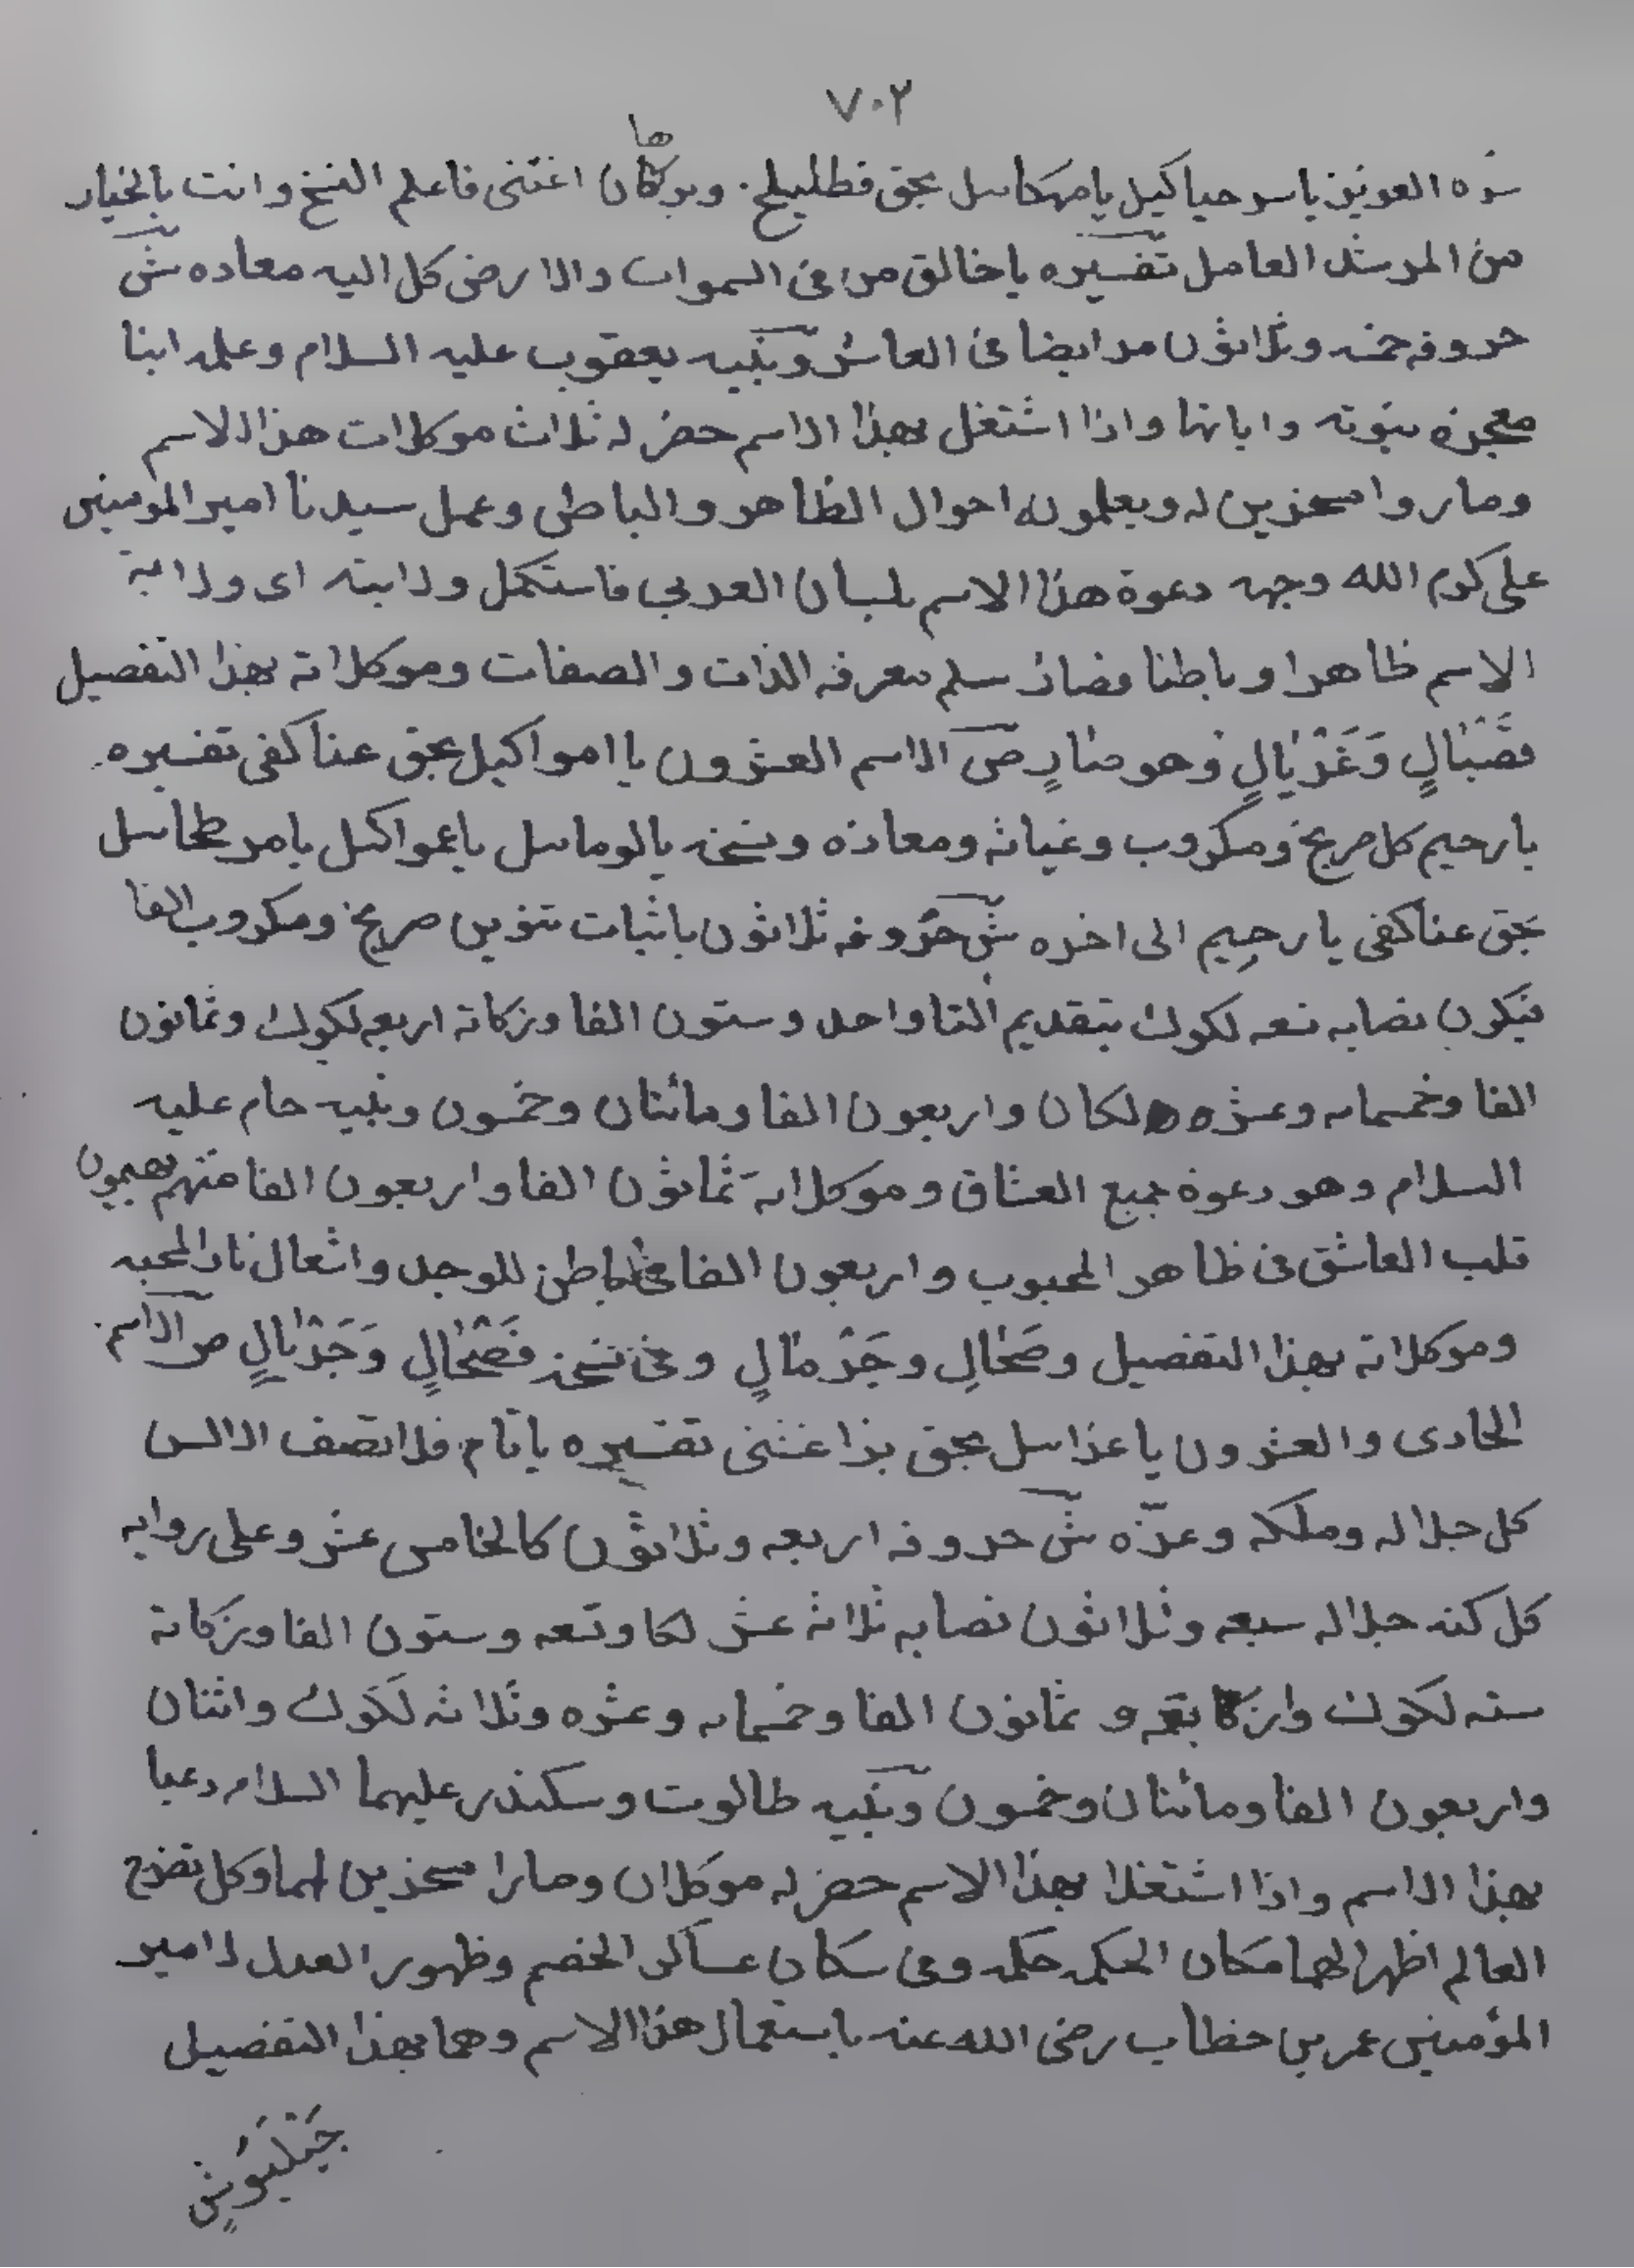 ٧٠٢
ها
العزيز يا سرحياكيل يا مهكاييل بحق فطليلج. وبركان اغثنى فاعلم النسخ وانت بالخيار
من المرشد العامل تفسيره يا خالق من فى السموات والارض كل اليه معاده ش
حروفه خمسه وثلاثون مر ايضا فى العاشر ونبيه يعقوب عليه السلام وعلمه ابنا
معجزه نبوته واياتها واذا اشتغل بهذا الاسم حضر له ثلاث موكلات هذا الاسم
وصاروا مسخرين له ويعلمونه احوال الظاهر والباطن وعمل سيدنا امير المومنين
على كرم الله وجهه دعوة هذا الاسم بلسان العربي فاستكمل ولايته اى ولاية
الاسم ظاهرا وباطنا فصار سلم معرفه الذات والصفات وموكلاته بهذا التفصيل
فَصَبَالٍ وَغَرْيَالٍ وهو ضارٍ ص الاسم العشرون يا امواكيل بحق عناكفى تفسيره
يا رحيم كل صريخ ومكروب وغياثه ومعاذه ونسخه يا لومائيل يا عمواكيل يا مرطحاييل
بحق عناكفى يا رحيم الى اخره ش حروفه ثلاثون باثبات تنوين صريخ ومكروب الفا
فيكون نصابه تسعه لكوك بتقديم التا واحد وستون الفا وزكاته اربعه لكوك وثمانون
الفا وخمسمايه وعشره لكان واربعون الفا ومائتان وخمسون ونبيه حام عليه
السلام وهو دعوة جميع العشاق وموكلاته ثمانون الفا واربعون الفا منهم يهيمون
قلب العاشق فى ظاهر المحبوب واربعون الفا فى الباطن للوجد واشعال نار المحبه
وموكلاته بهذا التفصيل وصَحَالٍ وجَرْمَالٍ وفى نسخه فَصْحَالٍ وَجَرْيَالٍ ص الاسم
الحادى والعشرون يا عزاييل بحق بذا غثنى تفسيره يا تام فلا تصف الالسن
كل جلاله وملكه وعزه ش حروفه اربعه وثلاثون كالخامس عشر وعلى روايه
كل كنه جلاله سبعه وثلاثون نصابه ثلاثه عشر لكا وتسعه وستون الفا وزكاته
سته لكوك واربعه و ثمانون الفا وخمسمايه وعشره وثلاثه لكوك واثنان
واربعون الفا ومائتان وخمسون ونبيه طالوت وسكندر عليهما السلام دعيا
بهذا الاسم واذا اشتغلا بهذا الاسم حضر له موكلان وصارا مسخرين لهما وكل تضرع
العالم اظهرا لهما مكان الحكمه حكمه وعن سكان عساكر الخصم وظهور العدل لامير
المؤمنين عمر بن خطاب رضى الله عنه باستعمال هذا الاسم وهما بهذا التفصيل
جَيْلَيُوشٍ